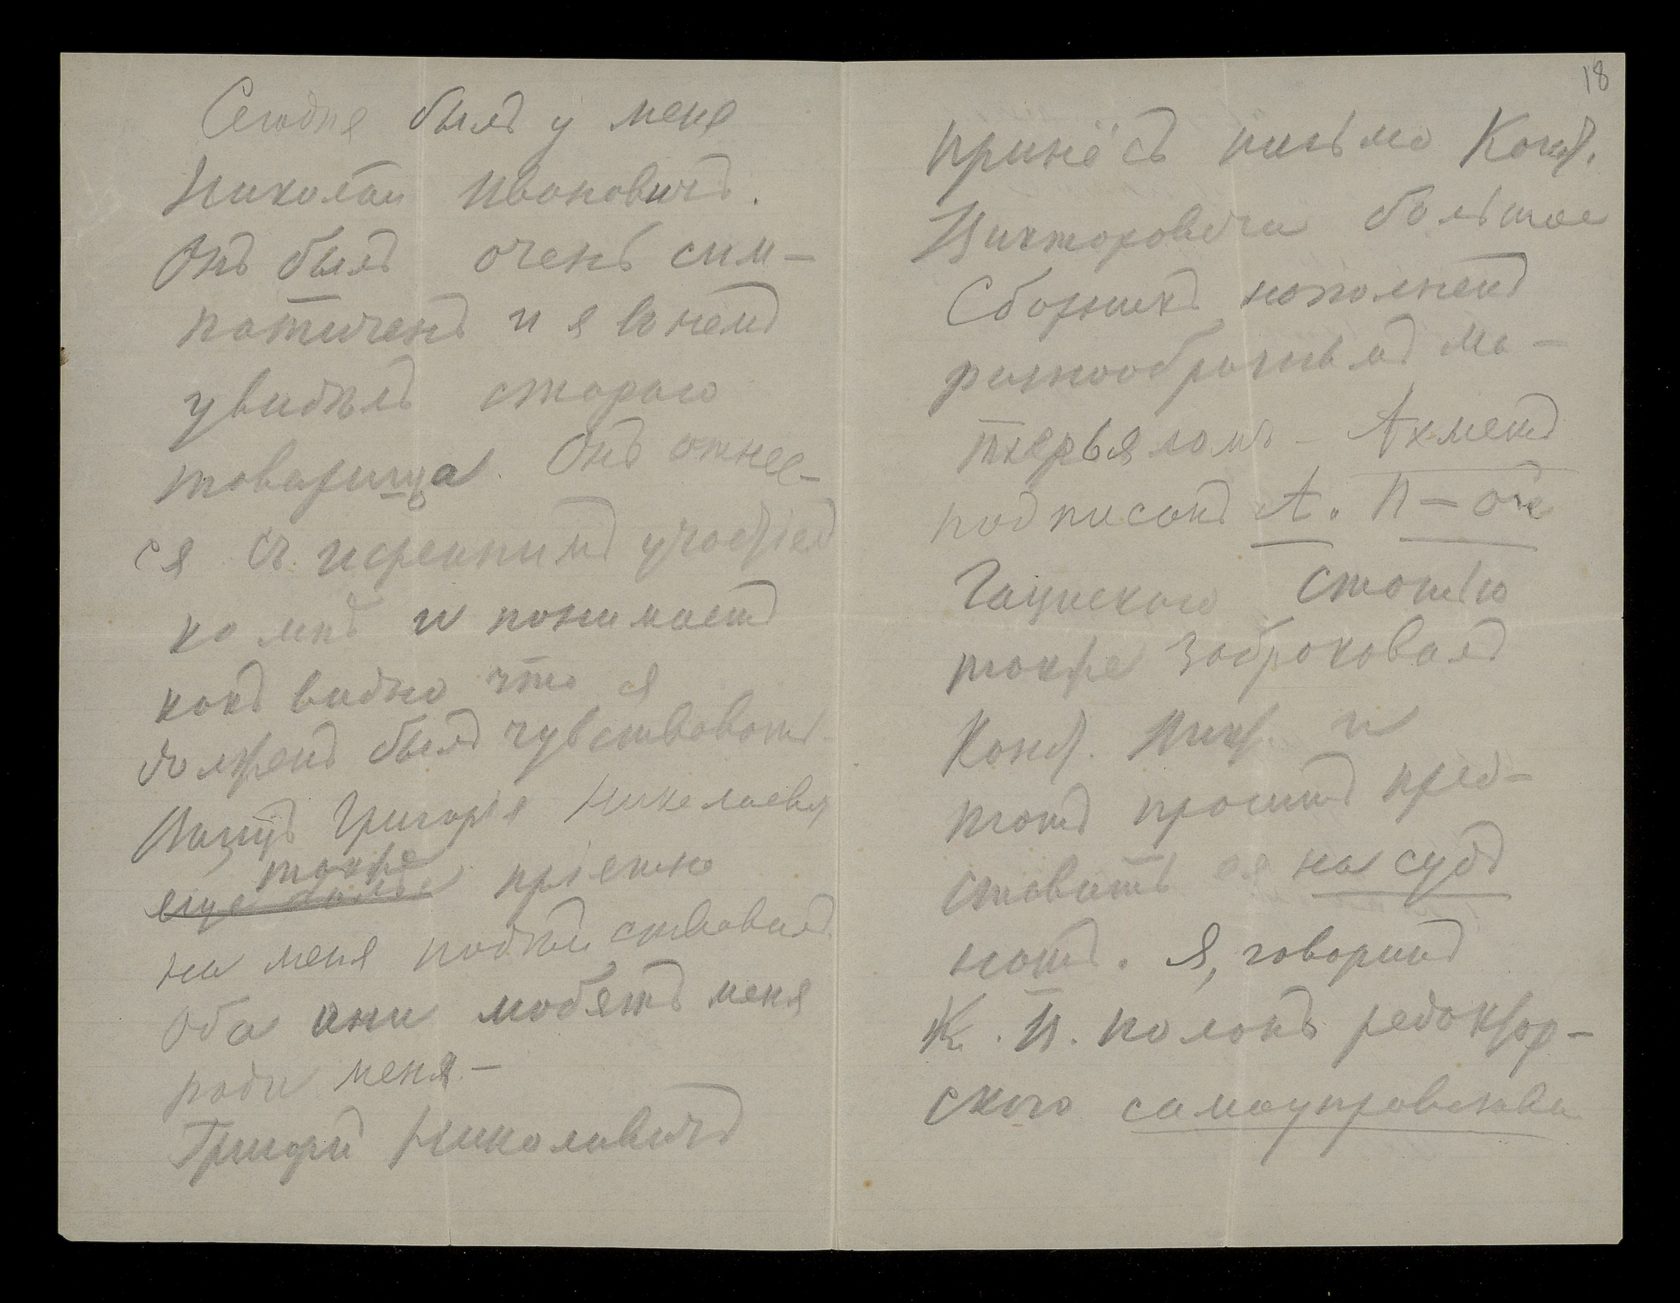 Сегодня былъ у меня
Николай Ивановичъ.
Онъ былъ очень сим-
патиченъ и я въ немъ
увидѣлъ стараго
товарища. Онъ отнес-
ся съ искреннимъ участіемъ
ко мнѣ и понимаетъ
какъ видно что я
долженъ былъ чувствовать.
Григорія Николаевича
также
еще болѣе пріятно
на меня подѣйствовалъ
Оба они любятъ меня
ради меня –
Григорій Николаевичъ
18
принёсъ письмо Конст.
Викторовича большое
Сборникъ наполненъ
разнообразнымъ ма-
терьяломъ – Ахметъ
подписанъ А. П–оче
Гациского статью
также забраковалъ
Конст. Викт. и
тотъ проситъ пред-
ставить ее на судъ
нашъ. Я, говоритъ
К. В. полонъ редактор-
скаго самоуправства